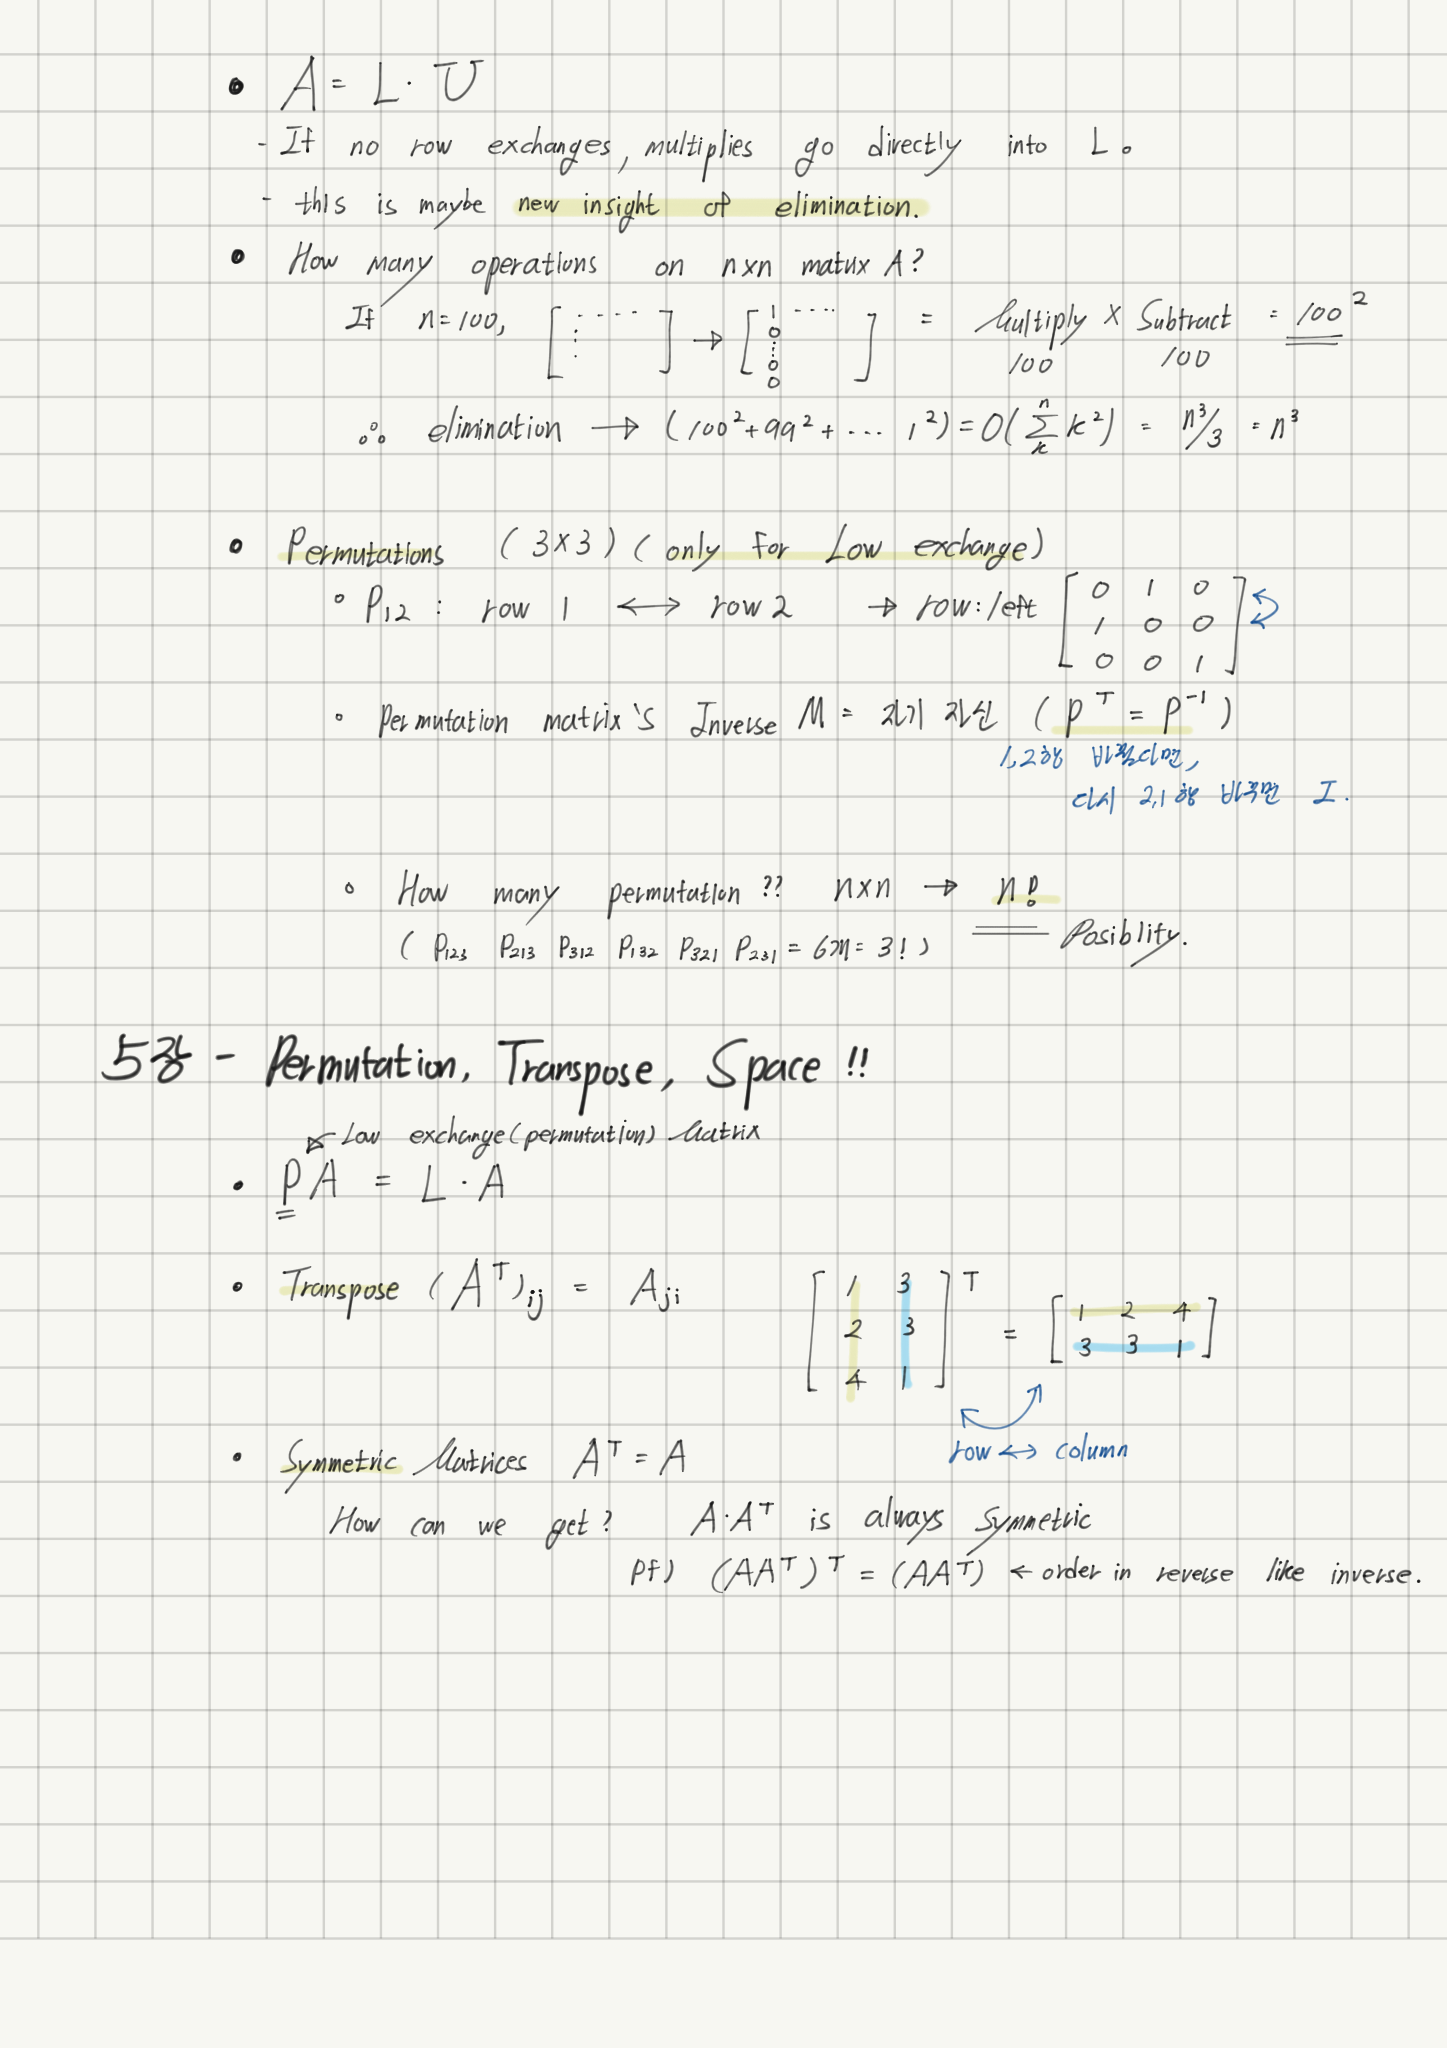 • A = L · U
- If no row exchanges, multiplies go directly into L。
- this is maybe new insight of elimination.
• How many operations on n×n matrix A?
If n=100, [ · · · · · ] → [ 1 · · · · 0 ⋮ 0 0 ] = Multiply × Subtract = 100²
100 100
∴ elimination → (100²+99²+ ··· 1²) = O(∑ⁿₖ k²) = n³/3 = n³
• Permutations (3×3) (only for Low exchange)
◦ P₁₂ : row 1 ↔ row 2 → row : left [ 0 1 0
1 0 0
0 0 1 ]
◦ permutation matrix's Inverse M = 자기 자신 (Pᵀ = P⁻¹)
1,2행 바꿨다면,
다시 2,1행 바꾸면 I.
◦ How many permutation ?? n×n → n!
( P₁₂₃ P₂₁₃ P₃₁₂ P₁₃₂ P₃₂₁ P₂₃₁ = 6개 = 3! ) Posiblity.
5강 - Permutation, Transpose, Space !!
Low exchange(permutation) Matrix
• PA = L · A
• Transpose (Aᵀ)ᵢⱼ = Aⱼᵢ [ 1 3
2 3
4 1 ]ᵀ = [ 1 2 4
3 3 1 ]
row ↔ column
• Symmetric Matrices Aᵀ = A
How can we get? A·Aᵀ is always Symmetric
pf) (AAᵀ)ᵀ = (AAᵀ) ← order in reverse like inverse.